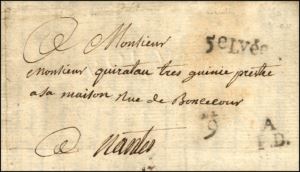 A Monsieur
5e Lvée
Monsieur quiratau tres guinie prestre
a sa maison Rue de Boncecour
9
A
P.D.
A nantes